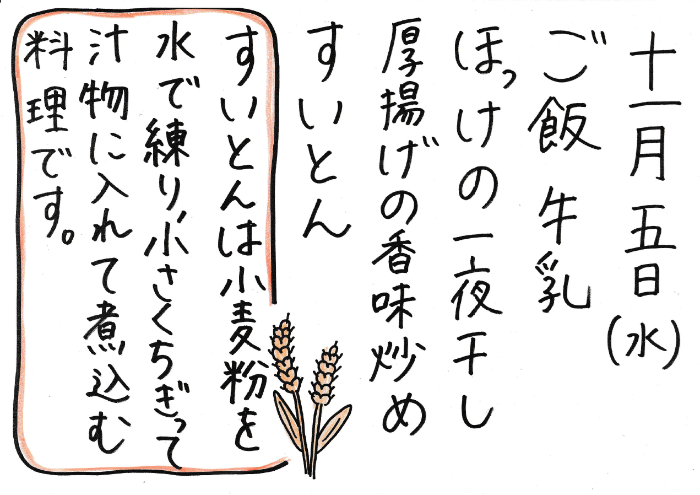 十一月五日(水)
ご飯 牛乳
ほっけの一夜干し
厚揚げの香味炒め
すいとん
すいとんは小麦粉を
水で練り、小さくちぎって
汁物に入れて煮込む
料理です。